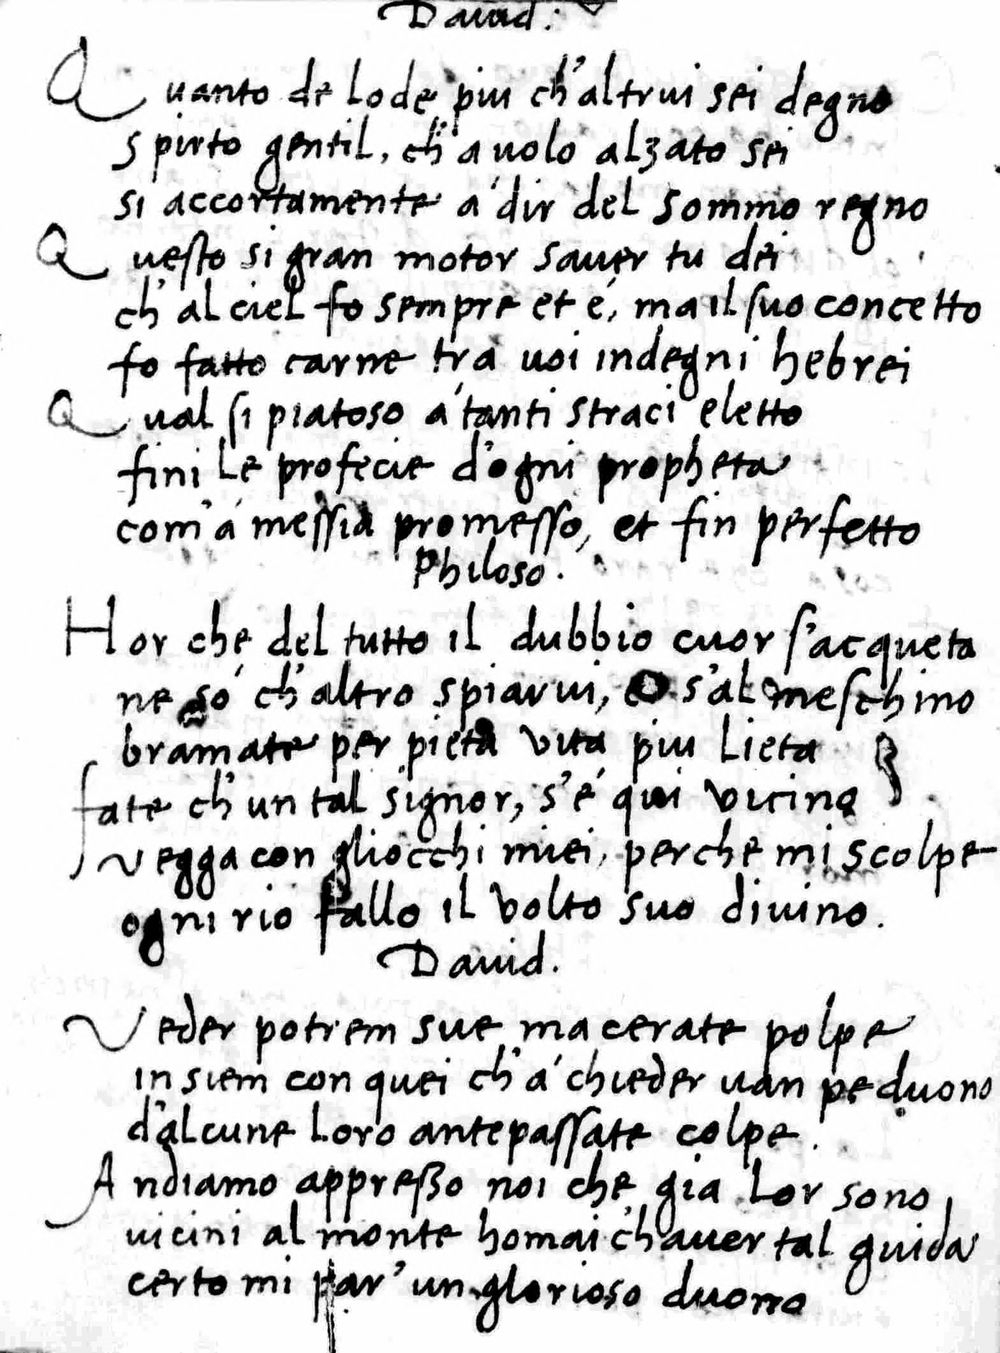 Dauid.
Quanto de lode piu ch'altrui sei degno
spirto gentil, ch'a uolo alzato sei
si accortamente a' dir del sommo regno
Questo si gran motor sauer tu dei
ch'al ciel fo sempre et é, ma il suo concetto
fo fatto carne tra uoi indegni hebrei
Qual si piatoso a' tanti straci eletto
fini le profecie d'ogni propheta
com'a' messia promesso, et fin perfetto
Philoso.
Hor che del tutto il dubbio cuor s'acqueta
ne só ch'altro spiarui, o s'al meschino
bramate per pietà vita piu lieta
fate ch'un tal signor, s'é qui vicino
vegga con gliocchi miei, perche mi scolpe
ogni rio fallo il volto suo diuino.
Dauid.
Veder potrem sue macerate polpe
insiem con quei ch'a' chieder uan peduono
d'alcune loro antepassate colpe.
Andiamo appresso noi che gia lor sono
uicini al monte homai chauer tal guida
certo mi par'un glorioso duono